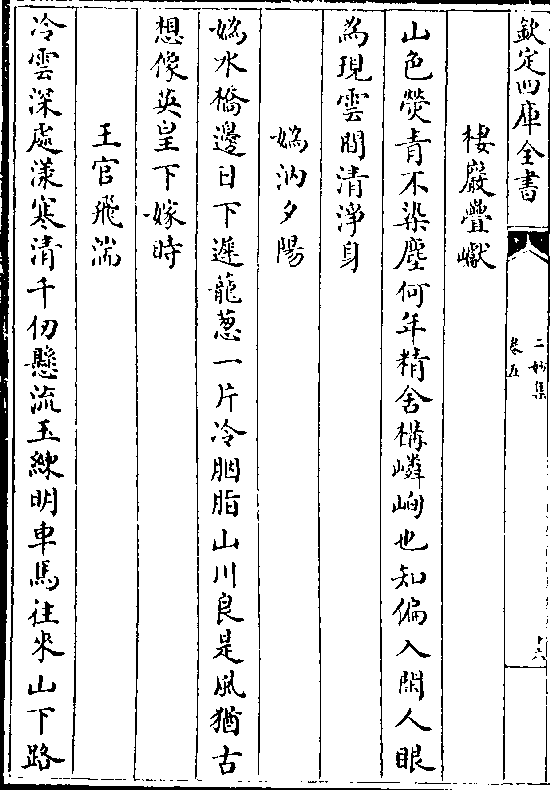 欽定四庫全書
二妙集
卷五
十六
棲巖疊巘
山色熒青不染塵何年精舍構嶙峋也知偏入閒人眼
為現雲間清淨身
媯汭夕陽
媯水橋邊日下遲龍蔥一片冷胭脂山川良是風猶古
想像英皇下嫁時
王官飛湍
冷雲深處漾寒清千仞懸流玉練明車馬往來山下路